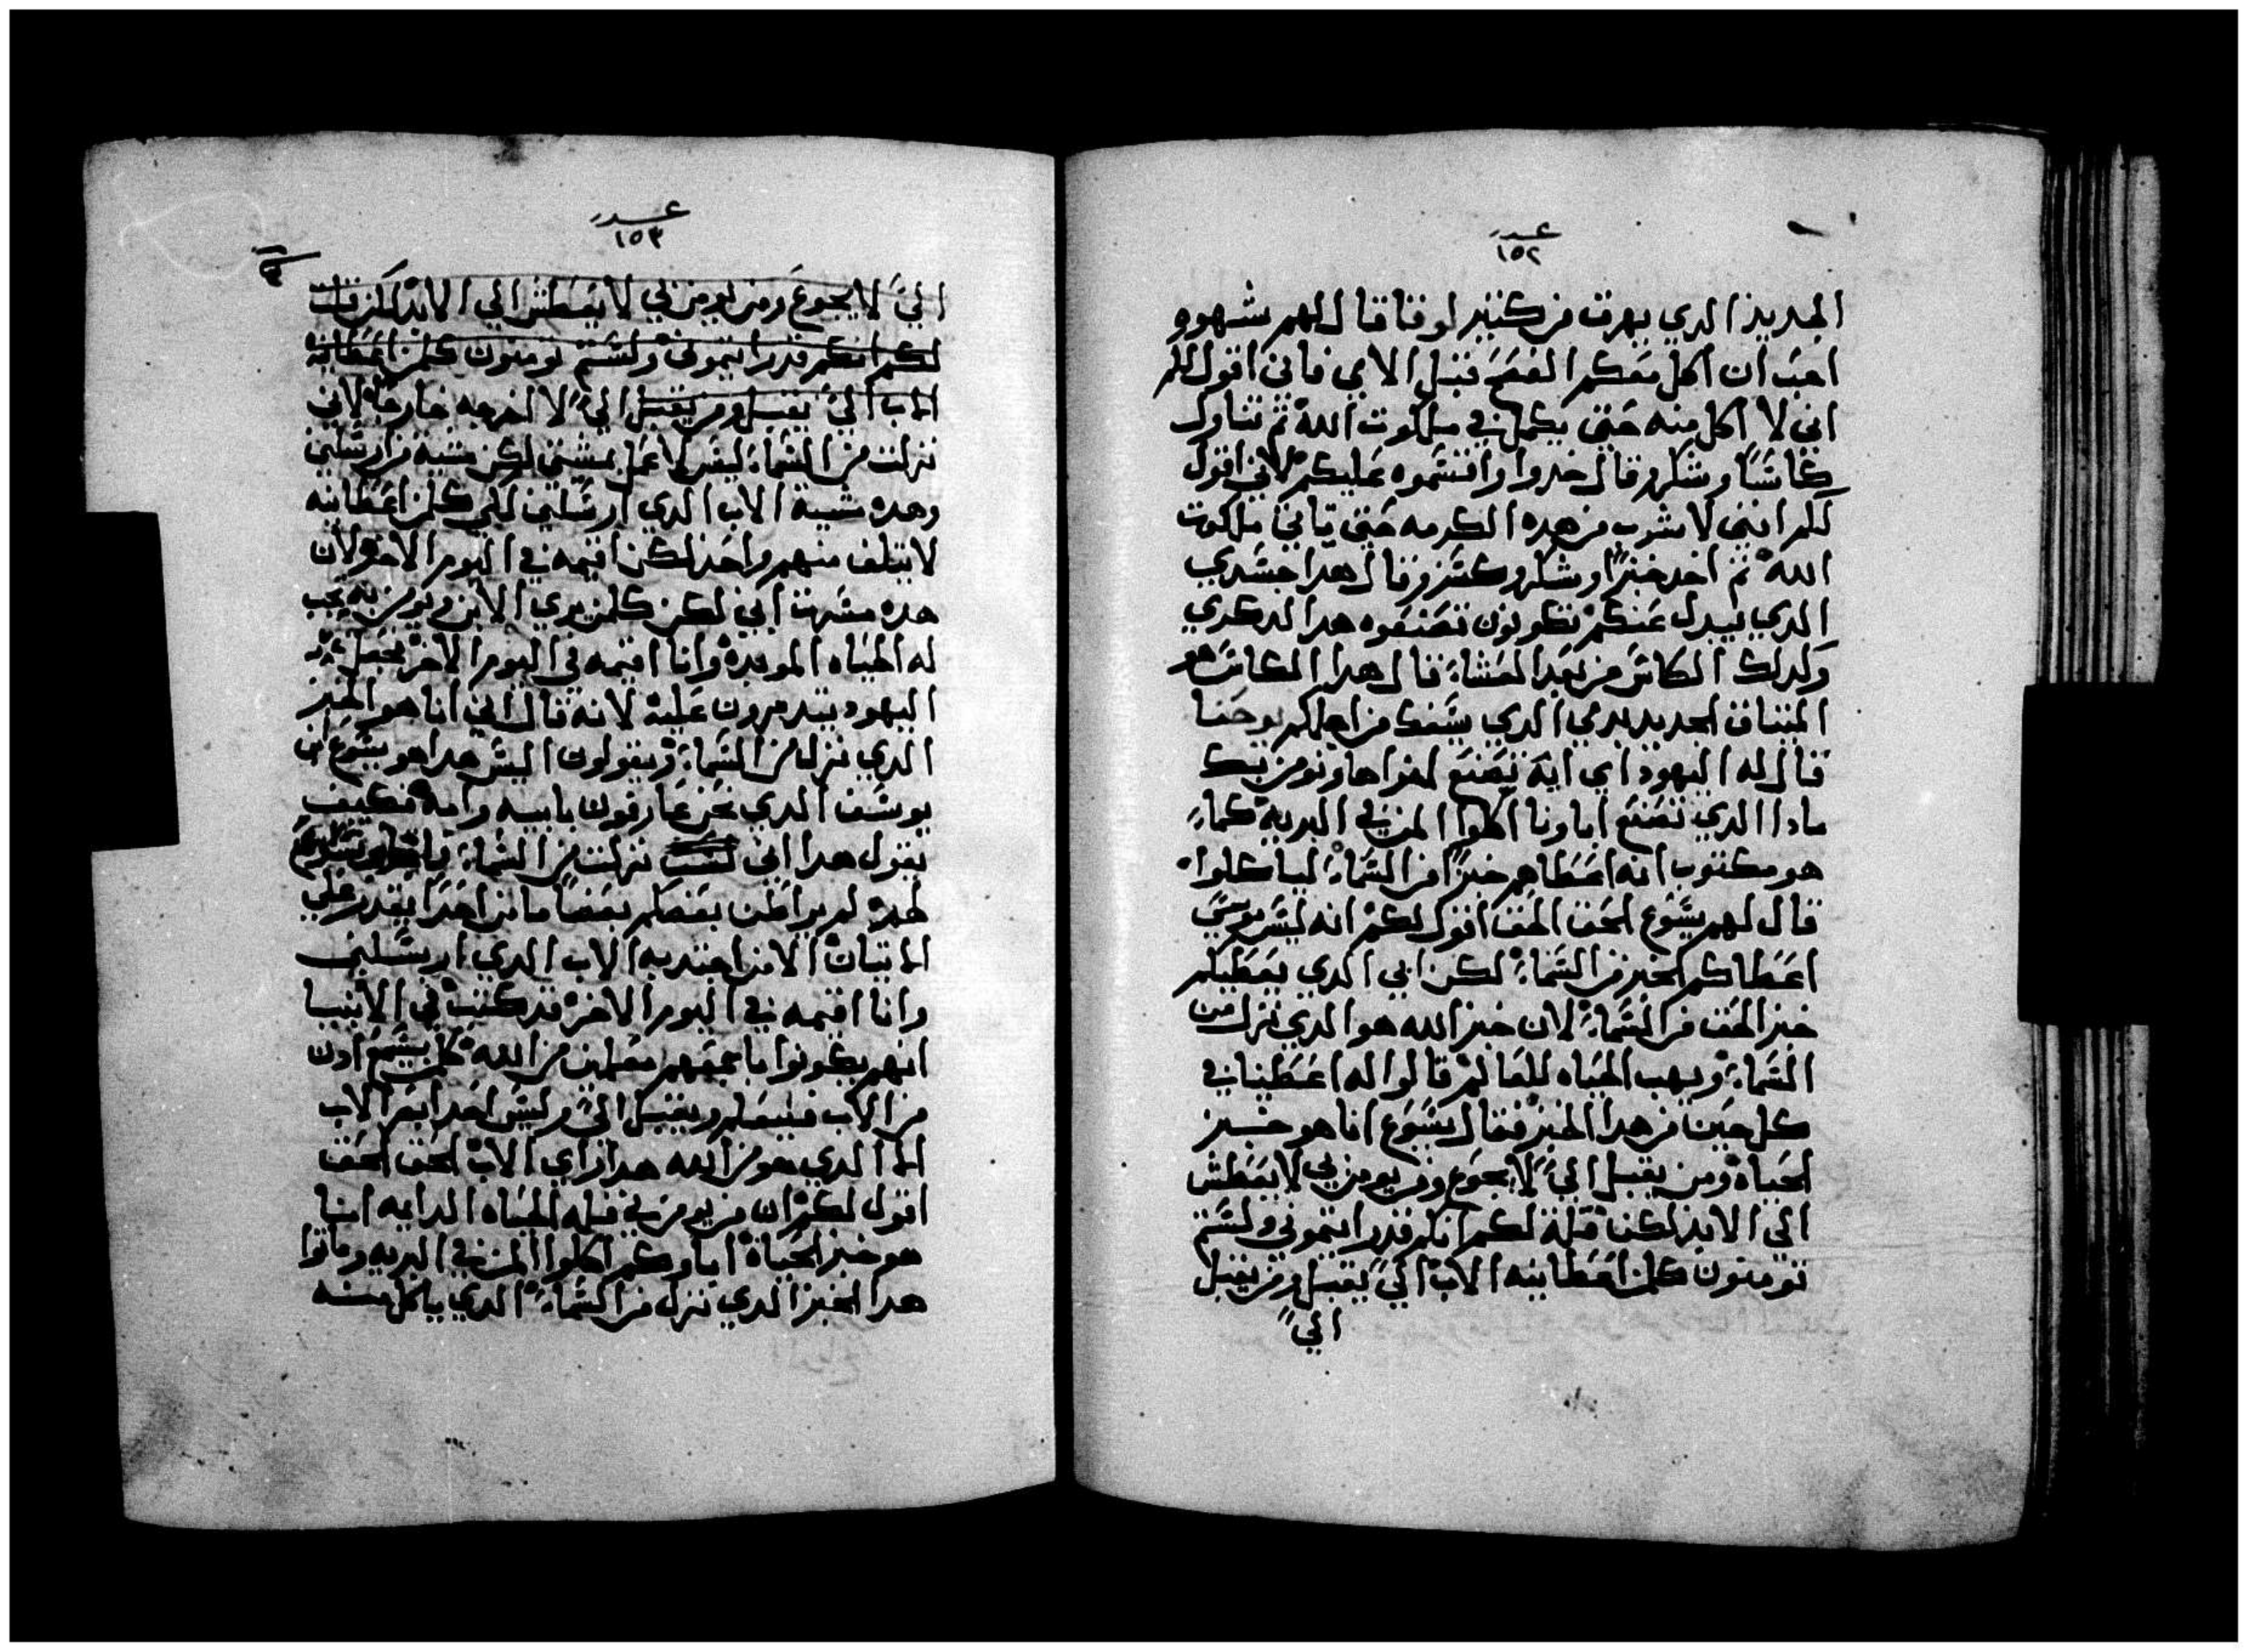 عدد
١٥٢
الجديد الدي يهرق عن كثير لوقا قال لهم شهوه
احب ان اكل معكم الفصح قبل الامي فاني اقول لكم
اني لا اكل منه حتي يكمل في ملكوت الله ثم تناول
كاسًا وشكر وقال خدوا واقتسموه عليكم لاني اقول
لكم انني لا اشرب من هده الكرمه حتي تاتي ملكوت
الله ثم اخد خبزًا وشكر وكسر وقال هدا جسدي
الدي يبدل عنكم تكونون تصنعوه هدا لدكري
وكدلك الكاس من بعد العشاء قال هدا الكاس هو
الميتاق الجديد بدمي الدي يسفك من اجلكم يوحنا
قال له اليهود اي اية تصنع لنراها ونومن بك
مادا الدي تصنع اباونا اكلوا المن في البرية كماء
هو مكتوب انه اعطاهم خبزًا من السماء لياكلوا
قال لهم يسوع الحق الحق اقول لكم انه ليس موسي
اعطاكم الخبز من السماء لكن ابي الدي يعطيكم
خبز الحق من السماء لان خبز الله هو الدي نزل من
السماء ويهب الحياه للعالم قالوا له اعطينا في
كل حين من هدا الخبز فقال يسوع انا هو خبز
الحياة ومن يقبل اليّ لا يجوع ومن يومن بي لا يعطش
الي الابد لكن قلة لكم انكم قد رايتموني ولستم
تومنون كلمن اعطانيه الاب اليّ يقبل ومن يقبل
اليّ
عدد
١٥٣
اليّ لا يجوع ومن يومن بي لا يعطش الي الابد لكن قلت
لكم انكم قد رايتموني ولستم تومنون كلمن اعطانيه
الاب اليّ يقبل ومن يقبل اليّ لا اخرجه خارجًا لاني
نزلت من السماء ليس لاعمل بمشيتي لكن مشية من ارسلني
وهده مشية الاب الدي ارسلني لكي كلمن اعطانيه
لا يتلف منهم واحد لكن اقيمه في اليوم الاخر لان
هده مشية ابي لكن كلمن يري الابن ويومن به يجب
له الحياه الموبدة وانا اقيمه في اليوم الاخر فجعل
اليهود يتدمرون علية لانه قال اني انا هو الخبز
الدي نزل من السماء ويقولون اليس هدا هو يسوع ابن
يوسف الدي نحن عارفون بابيه وامه فكيف
يقول هدا اني نزلت من السماء يسوع
لهم لم يراطن بعضكم بعضًا ما من احدًا يقدر علي
الاتيان الا من اجتدبه الاب الدي ارسلني
وانا اقيمه في اليوم الاخر قد كتب في الانبيا
انهم يكونوا باجمعهم معلمين من الله كلمن يسمع ادن
من الاب فيتعلم ويقبل اليّ وليس احدا يرا الاب
الا الدي هو من الله هدا راي الاب الحق الحق
اقول لكم ان من يومن بي فله الحياه الدايمه انا
هو خبز الحياة اباوكم اكلوا المن في البريه وماتوا
هدا الخبز الدي نزل من السماء الدي ياكل منه